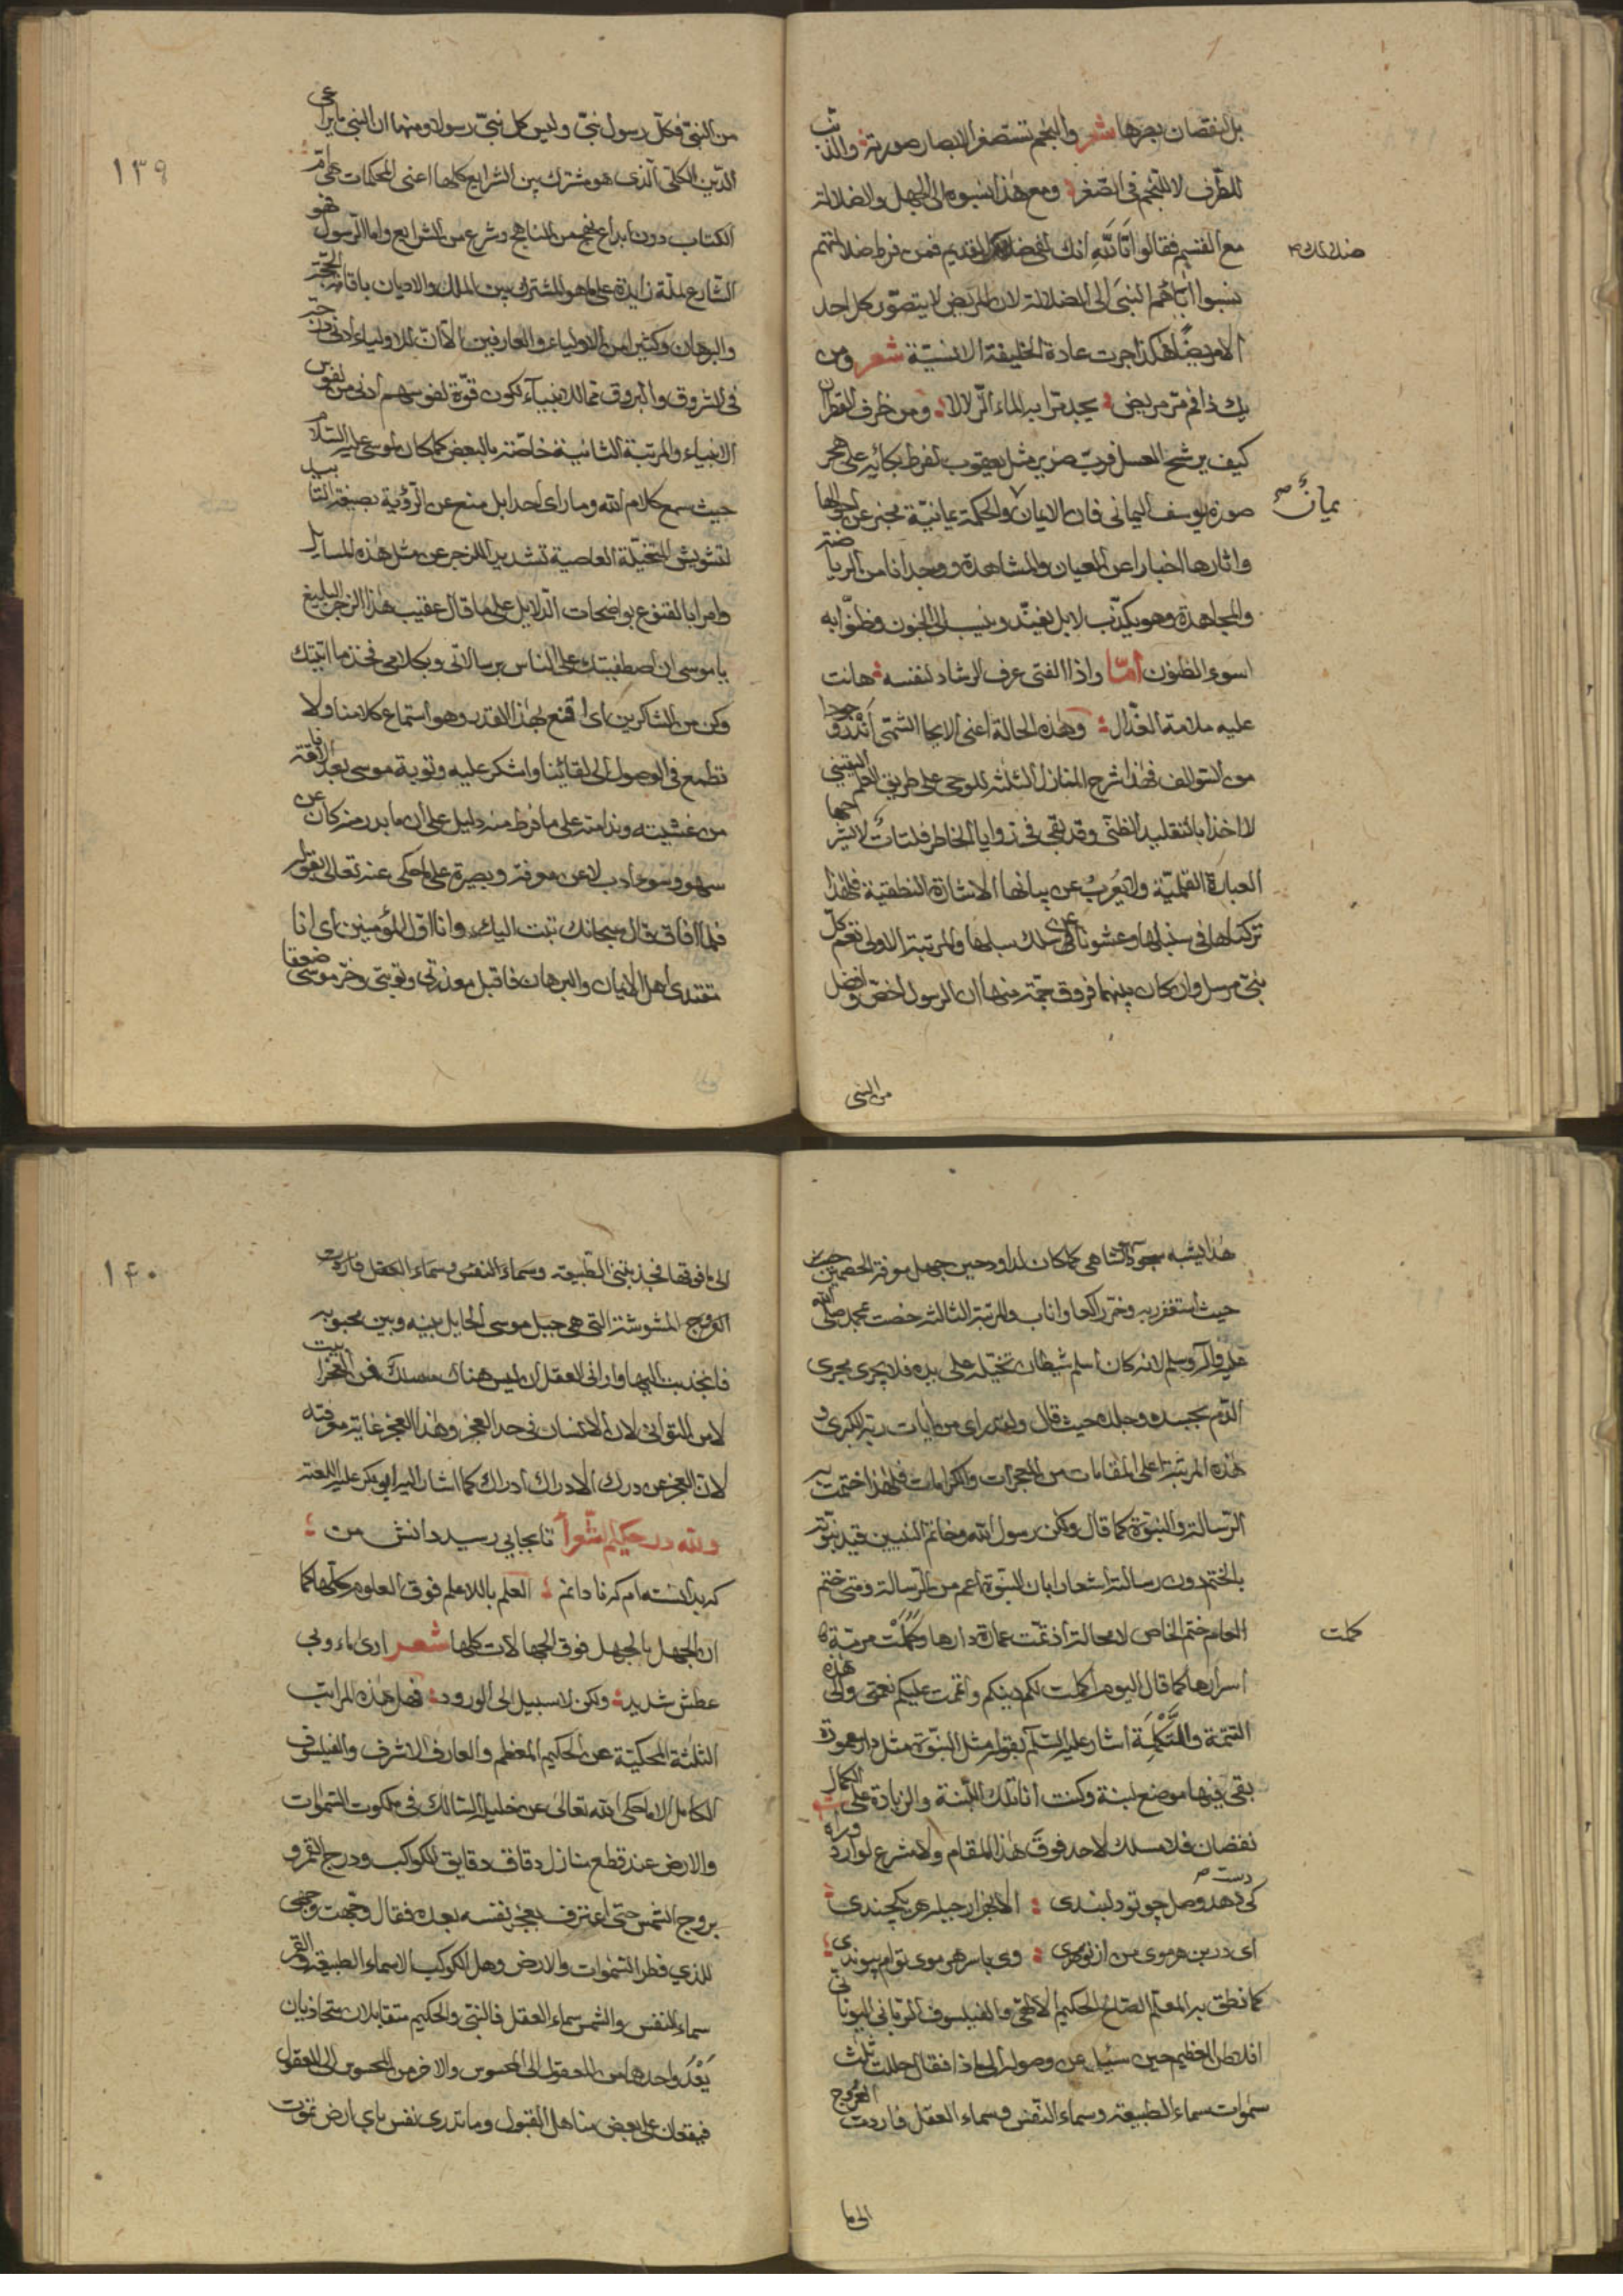 بل لنقصان بصرها شعر والنجم تستصغر الابصار صورته والذنب
للطرف لا للنجم فى الصغر ومع هذا ينسبونه الى الجهل والضلالة
مع القسم فقالوا تالله انك لفى ضلالك القديم فمن فرط ضلالتهم
ضلالك
نسبوا اباهم النبى الى الضلالة لان المريض لا يتصور كل احد
الا مريضا هكذا جرت عادة الخليقة الانسية شعر ومن
يك ذا فم مر مريض يجد مرا به الماء الزلالا ومن ظرف القطران
كيف يرشح العسل فرب ضرير مثل يعقوب لفرط بكائه على هجر
صورة يوسف اليمانى فان الايمان والحكمة يمانية مخبر عن احوالها
يمان
واثارها اخبارا عن العيان والمشاهدة ووجدانا من الرياضة
والمجاهدة وهو يكذب لا بل يفند وينسب الى الجنون وظنوا به
اسوء الظنون اما واذا الفتى عرف الرشاد لنفسه هانت
عليه ملامة العذال وهذه الحالة اعنى الايحا الشمى اندر وجودا
من السوالف فهذا شرح المنازل الثلثة للوحى على طريق العلم اليقينى
لا اخذا بالتقليد الظنى وقد بقى فى زوايا الخاطر فلتات لا يشرحها
العبارة القلمية ولا يعرب عن بيانها الاشارة النطقية فلهذا
تركناها فى سنبلها وعشونا عن سلك سبلها والمرتبة الاولى تعم كل
نبى مرسل وان كان بينهما فروق جمة منها ان الرسول اخص وافضل
من النبى
١٣٩
من النبى فكل رسول نبى وليس كل نبى رسولا ومنها ان النبى يراعى
الدين الكلى الذى هو مشترك بين الشرايع كلها اعنى المحكمات هى ام
الكتاب دون ابداع نهج من المناهج وشرع من الشرايع واما الرسول فهو
الشارع لملة زايدة على ما هو المشترك بين الملل والاديان باقامة الحجة
والبرهان وكثيرا من الاولياء والعارفين الا ان للاولياء ادنى درجة
فى الشروق والبروق مما للانبياء لكون قوة نفوسهم ادنى من نفوس
الانبياء والمرتبة الثانية خاصة بالبعض كما كان لموسى عليه السلام
حيث سمع كلام الله وما راى احدا بل منع عن الرؤية بصيغة التابيد
لتشويش المتخيلة العاصية تشديدا للزجر عن مثل هذه المسايل
وامرا بالقنوع بواضحات الدلايل على ما قال عقيب هذا الزجر البليغ
يا موسى ان اصطفيتك على الناس برسالاتى وبكلامى فخذ ما اتيتك
وكن من الشاكرين اى اقنع بهذا القدر وهو استماع كلامنا ولا
تطمع فى الوصول الى لقائنا واشكر عليه وتوبة موسى بعد الافاقة
من غشيته وندامته على ما فرط منه دليل على ان ما بدر منه كان عن
سهو وسوء ادب لا عن معرفة وبصيرة على ما حكى عنه تعالى بقوله
فلما افاق قال سبحانك تبت اليك وانا اول المؤمنين اى انا
مقتدى اهل الايمان والبرهان فاقبل معذرتى وتوبتى وخر موسى صعقا
هذا يشبه سجود الشاهى كما كان لداود حين جهل معرفة الخصمين
حيث استغفر ربه وخر راكعا واناب والمرتبة الثالثة خصت بمحمد صلى الله
عليه واله وسلم لانه كان اسلم شيطان تخيله على يده فلا يجرى مجرى
الدم بجسده وجلده حيث قال ولقد راى من ايات ربه الكبرى و
هذه المرتبة اعلى المقامات من المعجزات والكرامات فلهذا ختمت به
الرسالة والنبوة كما قال ولكن رسول الله وخاتم النبيين قيد نبوته
بالختم دون رسالته اشعارا بان النبوة اعم من الرسالة ومتى ختم
العام ختم الخاص لا محالة اذ تمت عمارة دارها وكملت مرمة
كملت
اسرارها كما قال اليوم اكملت لكم دينكم واتممت عليكم نعمتى والى هذه
التتمة والتكلمة اشار عليه السلم بقوله مثل النبوة مثل دار معمورة
بقى فيها موضع لبنة وكنت انا تلك اللبنة والزيادة على الكمال
نقصان فلا مسلك لاحد فوق هذا المقام ولا مشرع لوارد وراه
كى دهد دست وصل چو تو دلبندى الا بهزار حيله هر يكچندى
اى در بن هر موى من از تو مهرى وى با سر هر موى توام پيوندى
كما نطق به المعلم الصالح الحكيم الالهى والفيلسوف الربانى اليونانى
افلاطن العظيم حين سئل عن وصوله الى ماذا فقال حللت ثلث
سموات سماء الطبيعة وسماء النفس وسماء العقل فاردت العروج
الى ما
١٤٠
الى ما فوقها فجذبتنى الطبيعة وسماء النفس وسماء العقل فاردت
العروج المشوشة التى هى جبل موسى الحايل بينه وبين محبوبه
فانجذبت اليها وارانى العقل ان ليس هناك مسلك فمن التحير اتيت
لا من التوانى لان الانسان فى حد العجز وهذا العجز غاية معرفته
لان العجز عن درك الادراك ادراك كما اشار اليه ابو بكر عليه اللعنه
ولله در حكيم الشعرا تا بجايى رسيد دانش من
كه بدانسته ام كه نادانم العلم باللاعلم فوق العلوم كلها كما
ان الجهل بالجهل فوق الجهالات كلها شعر ارى ماء وبى
عطش شديد ولكن لا سبيل الى الورود فهل هذه المراتب
الثلثة المحكية عن الحكيم المعظم والعارف الاشرف والفيلسوف
الكامل الا ما حكى الله تعالى عن خليله السالك فى ملكوت السموات
والارض عند قطع منازل دقاق دقايق الكواكب ودرج القمر و
بروج الشمس حتى اعترف بعجز نفسه بعده فقال وجهت وجهى
للذى فطر السموات والارض وهل الكوكب الا سماء الطبيعة والقمر
سماء النفس والشمس سماء العقل فالنبى والحكيم متقابلان متحاذيان
يغد واحدهما من المعقول الى المحسوس والاخر من المحسوس الى المعقول
فيقعان على بعض مناهل القبول وما تدرى نفس باى ارض تموت